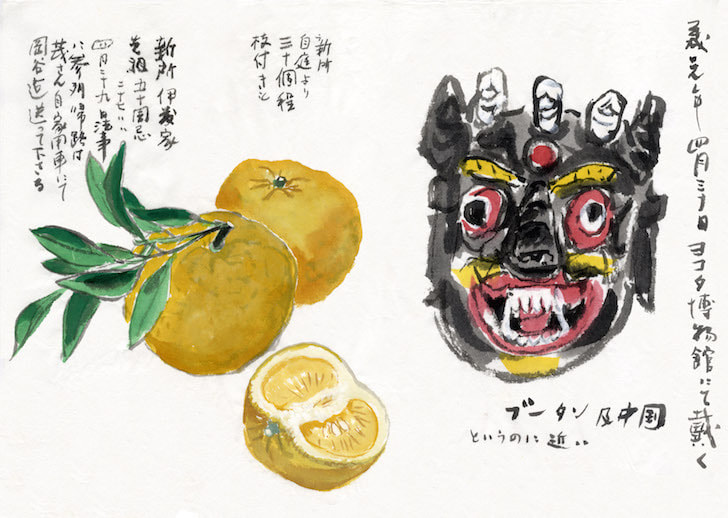 年四月三十日ヨコタ博物館にて戴く
ブータン及中国
というのに近い
新所
自庭より
三十個程
枝付きと
新所 伊藤家
五十回忌
四月二十九日法事
に参列帰路は
茂さん自家用車にて
岡谷迄送って下さる